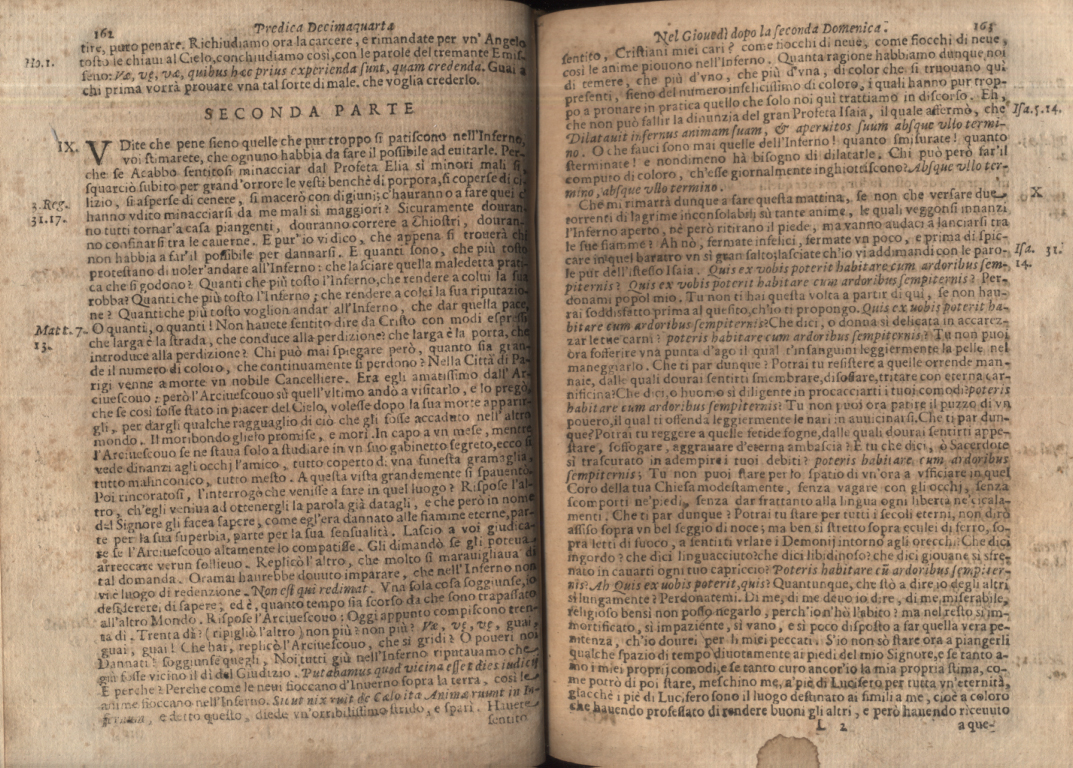 162 Predica Decimaquarta
tire, puro penare. Richiudiamo ora la carcere, e rimandate per vn' Angelo
tosto le chiaui al Cielo, conchiudiamo così, con le parole del tremante Emis-
Ho. 1.
seno: Væ, vę, væ, quibus hæc prius experienda sunt, quam credenda. Guai a
chi prima vorrà prouare vna tal sorte di male, che voglia crederlo.
SECONDA PARTE
IX.
VDite che pene sieno quelle che pur troppo si patiscono nell'Inferno,
voi stimarete, che ognuno habbia da fare il possibile ad euitarle. Per-
che se Acabbo sentitosi minacciar dal Profeta Elia sì minori mali si
squarciò subito per grand'orrore le vesti benchè di porpora, si coperse di ci-
lizio, si asperse di cenere, si macerò con digiuni; c'hauranno a fare quei c'
3. Reg.
21. 17.
hanno vdito minacciarsi da me mali sì maggiori? Sicuramente douran-
no tutti tornar'a casa piangenti, douranno correre a Chiostri, douran-
no confinarsi tra le cauerne. E pur'io vi dico, che appena si trouerà chi
non habbia a far'il possibile per dannarsi. E quanti sono, che più tosto
protestano di uoler'andare all'Inferno: che lasciare quella maledetta prati-
ca che si godono? Quanti che più tosto l'Inferno, che rendere a colui la sua
robba? Quanti che più tosto l'Inferno; che rendere a colei la sua riputazio-
ne? Quanti che più tosto voglion andar all'Inferno, che dar quella pace,
Matt. 7.
13.
O quanti, o quanti! Non hauete sentito dire da Cristo con modi espressi
che larga è la strada, che conduce alla perdizione? che larga è la porta, che
introduce alla perdizione? Chi può mai spiegare però, quanto sia gran-
de il numero di coloro, che continuamente si perdono? Nella Città di Pa-
rigi venne a morte vn nobile Cancelliere. Era egli amatissimo dall'Ar-
ciuescouo: però l'Arciuescouo sù quell'vltimo andò a visitarlo, e lo pregò,
che se così fosse stato in piacer del Cielo, volesse dopo la sua morte apparir-
gli, per dargli qualche ragguaglio di ciò che gli fosse accaduto nell'altro
mondo. Il moribondo glielo promise, e morì. In capo a vn mese, mentre
l'Arciuescouo se ne staua solo a studiare in vn suo gabinetto segreto, ecco si
vede dinanzi agli occhi l'amico, tutto coperto di vna funesta gramaglia,
tutto malinconico, tutto mesto. A questa vista grandemente si spauentò.
Poi rincoratosi, l'interrogò che venisse a fare in quel luogo? Rispose l'al-
tro, ch'egli veniua ad ottenergli la parola già datagli, e che però in nome
del Signore gli facea sapere, come egl'era dannato alle fiamme eterne, par-
te per la sua superbia, parte per la sua sensualità. Lascio a voi giudica-
re se l'Arciuescouo altamente lo compatisse. Gli dimandò se gli poteua
arreccare verun sollieuo. Replicò l'altro, che molto si marauigliaua di
tal domanda. Oramai haurebbe douuto imparare, che nell'Inferno non
vi è luogo di redenzione. Non est qui redimat. Vna sola cosa soggiunse, io
desiderere, di sapere; ed è, quanto tempo sia scorso da che sono trapassato
all'altro Mondo. Rispose l'Arciuescouo: Oggi appunto compiscono tren-
ta dì. Trenta dì? (ripigliò l'altro) non più? non più? Væ, vę, vę, guai,
guai, guai! Che hai, replicò l'Arciuescouo, che sì gridi? O poueri noi
Dannati! soggiunse quegli, Noi tutti giù nell'Inferno riputauamo che
già fosse vicino il dì del Giudizio. Putabamus quod vicina esset dies iudicij
E perche? Perche come le neui fioccano d'Inuerno sopra la terra, così le
anime fioccano nell'Inferno. Sicut nix ruit de Cælo ita Animæ ruunt in In-
fernum, e detto questo, diede vn'orribilissimo strido, e sparì. Hauete
sentito
Nel Giouedì dopo la seconda Domenica. 163
sentito, Cristiani miei cari? come fiocchi di neue, come fiocchi di neue,
così le anime piouono nell'Inferno. Quanta ragione habbiamo dunque noi
di temere, che più d'vno, che più d'vna, di color che si truouano qui
presenti, sieno del numero infelicissimo di coloro, i quali hanno pur trop-
po a prouare in pratica quello che solo noi qui trattiamo in discorso. Eh,
che non può fallir la dinunzia del gran Profeta Isaia, il quale affermò, che
Isa. 5. 14.
Dilatauit infernus animam suam, & aperuit os suum absque vllo termi-
no. O che fauci sono mai quelle dell'Inferno! quanto smisurate! quanto
sterminate! e nondimeno hà bisogno di dilatarle. Chi può però far'il
computo di coloro, ch'esse giornalmente inghiottiscono? Absque vllo ter-
mino, absque vllo termino.
X
Che mi rimarrà dunque a fare questa mattina, se non che versare due
torrenti di lagrime inconsolabili sù tante anime, le quali veggonsi innanzi
l'Inferno aperto, nè però ritirano il piede, ma vanno audaci a lanciarsi tra
le sue fiamme? Ah nò, fermate infelici, fermate vn poco, e prima di spic-
care in quel baratro vn sì gran salto; lasciate ch'io vi addimandi con le paro-
Isa. 31.
14.
le pur dell'istesso Isaia. Quis ex vobis poterit habitare cum ardoribus sem-
piternis? Quis ex vobis poterit habitare cum ardoribus sempiternis? Per-
donami popol mio. Tu non ti hai questa volta a partir di qui, se non hau-
rai soddisfatto prima al quesito, ch'io ti propongo. Quis ex vobis poterit ha-
bitare cum ardoribus sempiternis? Che dici, o donna sì delicata in accarez-
zar le tue carni? poteris habitare cum ardoribus sempiternis? Tu non puoi
ora sofferire vna punta d'ago il qual t'insanguini leggiermente la pelle nel
maneggiarlo. Che ti par dunque? Potrai tu resistere a quelle orrende man-
naie, dalle quali dourai sentirti smembrare, disossare, tritare con eterna car-
nificina? Che dici, o huomo sì diligente in procacciarti i tuoi comodi? poteris
habitare cum ardoribus sempiternis? Tu non puoi ora patire il puzzo di vn
pouero, il qual ti offenda leggiermente le nari in auuicinarsi. Che ti par dun-
que? Potrai tu reggere a quelle fetide fogne, dalle quali dourai sentirti appe-
stare, soffogare, aggrauare d'eterna ambascia? E tu che dici, o Sacerdote
sì trascurato in adempire i tuoi debiti? poteris habitare, cum ardoribus
sempiternis; Tu non puoi stare per lo spatio di vn'ora a vfficiare in quel
Coro della tua Chiesa modestamente, senza vagare con gli occhj, senza
scomporti ne'piedi, senza dar frattanto alla lingua ogni libertà ne'cicala-
menti. Che ti par dunque? Potrai tu stare per tutti i secoli eterni, non dirò
assiso sopra vn bel seggio di noce; ma ben sì stretto sopra eculei di ferro, so-
pra letti di fuoco, a sentirti vrlare i Demonij intorno agli orecchj? Che dici
ingordo? che dici linguacciuto? che dici libidinoso? che dici giouane sì sfre-
nato in cauarti ogni tuo capriccio? Poteris habitare cũ ardoribus sempiter-
nis? Ah Quis ex uobis poterit, quis? Quantunque, che stò a dire io degli altri
sì lungamente? Perdonatemi. Di me, di me deuo io dire, di me, miserabile,
religioso bensì non posso negarlo, perch'ion'hò l'abito? ma nel resto sì im-
mortificato, sì impaziente, sì vano, e sì poco disposto a far quella vera pe-
nitenza, ch'io dourei per li miei peccati. S'io non sò stare ora a piangerli
qualche spazio di tempo diuotamente ai piedi del mio Signore, e se tanto a-
mo i miei proprij comodi, e se tanto curo ancor'io la mia propria stima, co-
me potrò di poi stare, meschino me, a'piè di Lucifero per tutta vn'eternità,
giacchè i piè di Lucifero sono il luogo destinato ai simili a me, cioè a coloro
che hauendo professato di rendere buoni gli altri, e però hauendo riceuuto
L 2 a que-